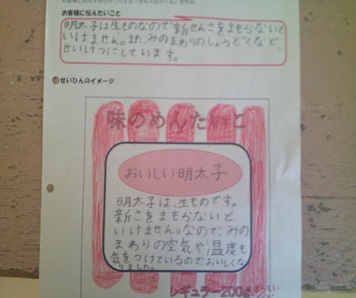 お客様に伝えたいこと
明太子は生ものなので新せんさをまもらないと
いけません。また、みのまわりのしょうどくなど
せいけつにしています。
せいひんのイメージ
味のめんたいこ
おいしい明太子
明太子は、生ものです。
新さをまもらないと
いけません。なので、みの
まわりの空気や温度も
気をつけているのでおいしくな
りました。
レギュラー200g